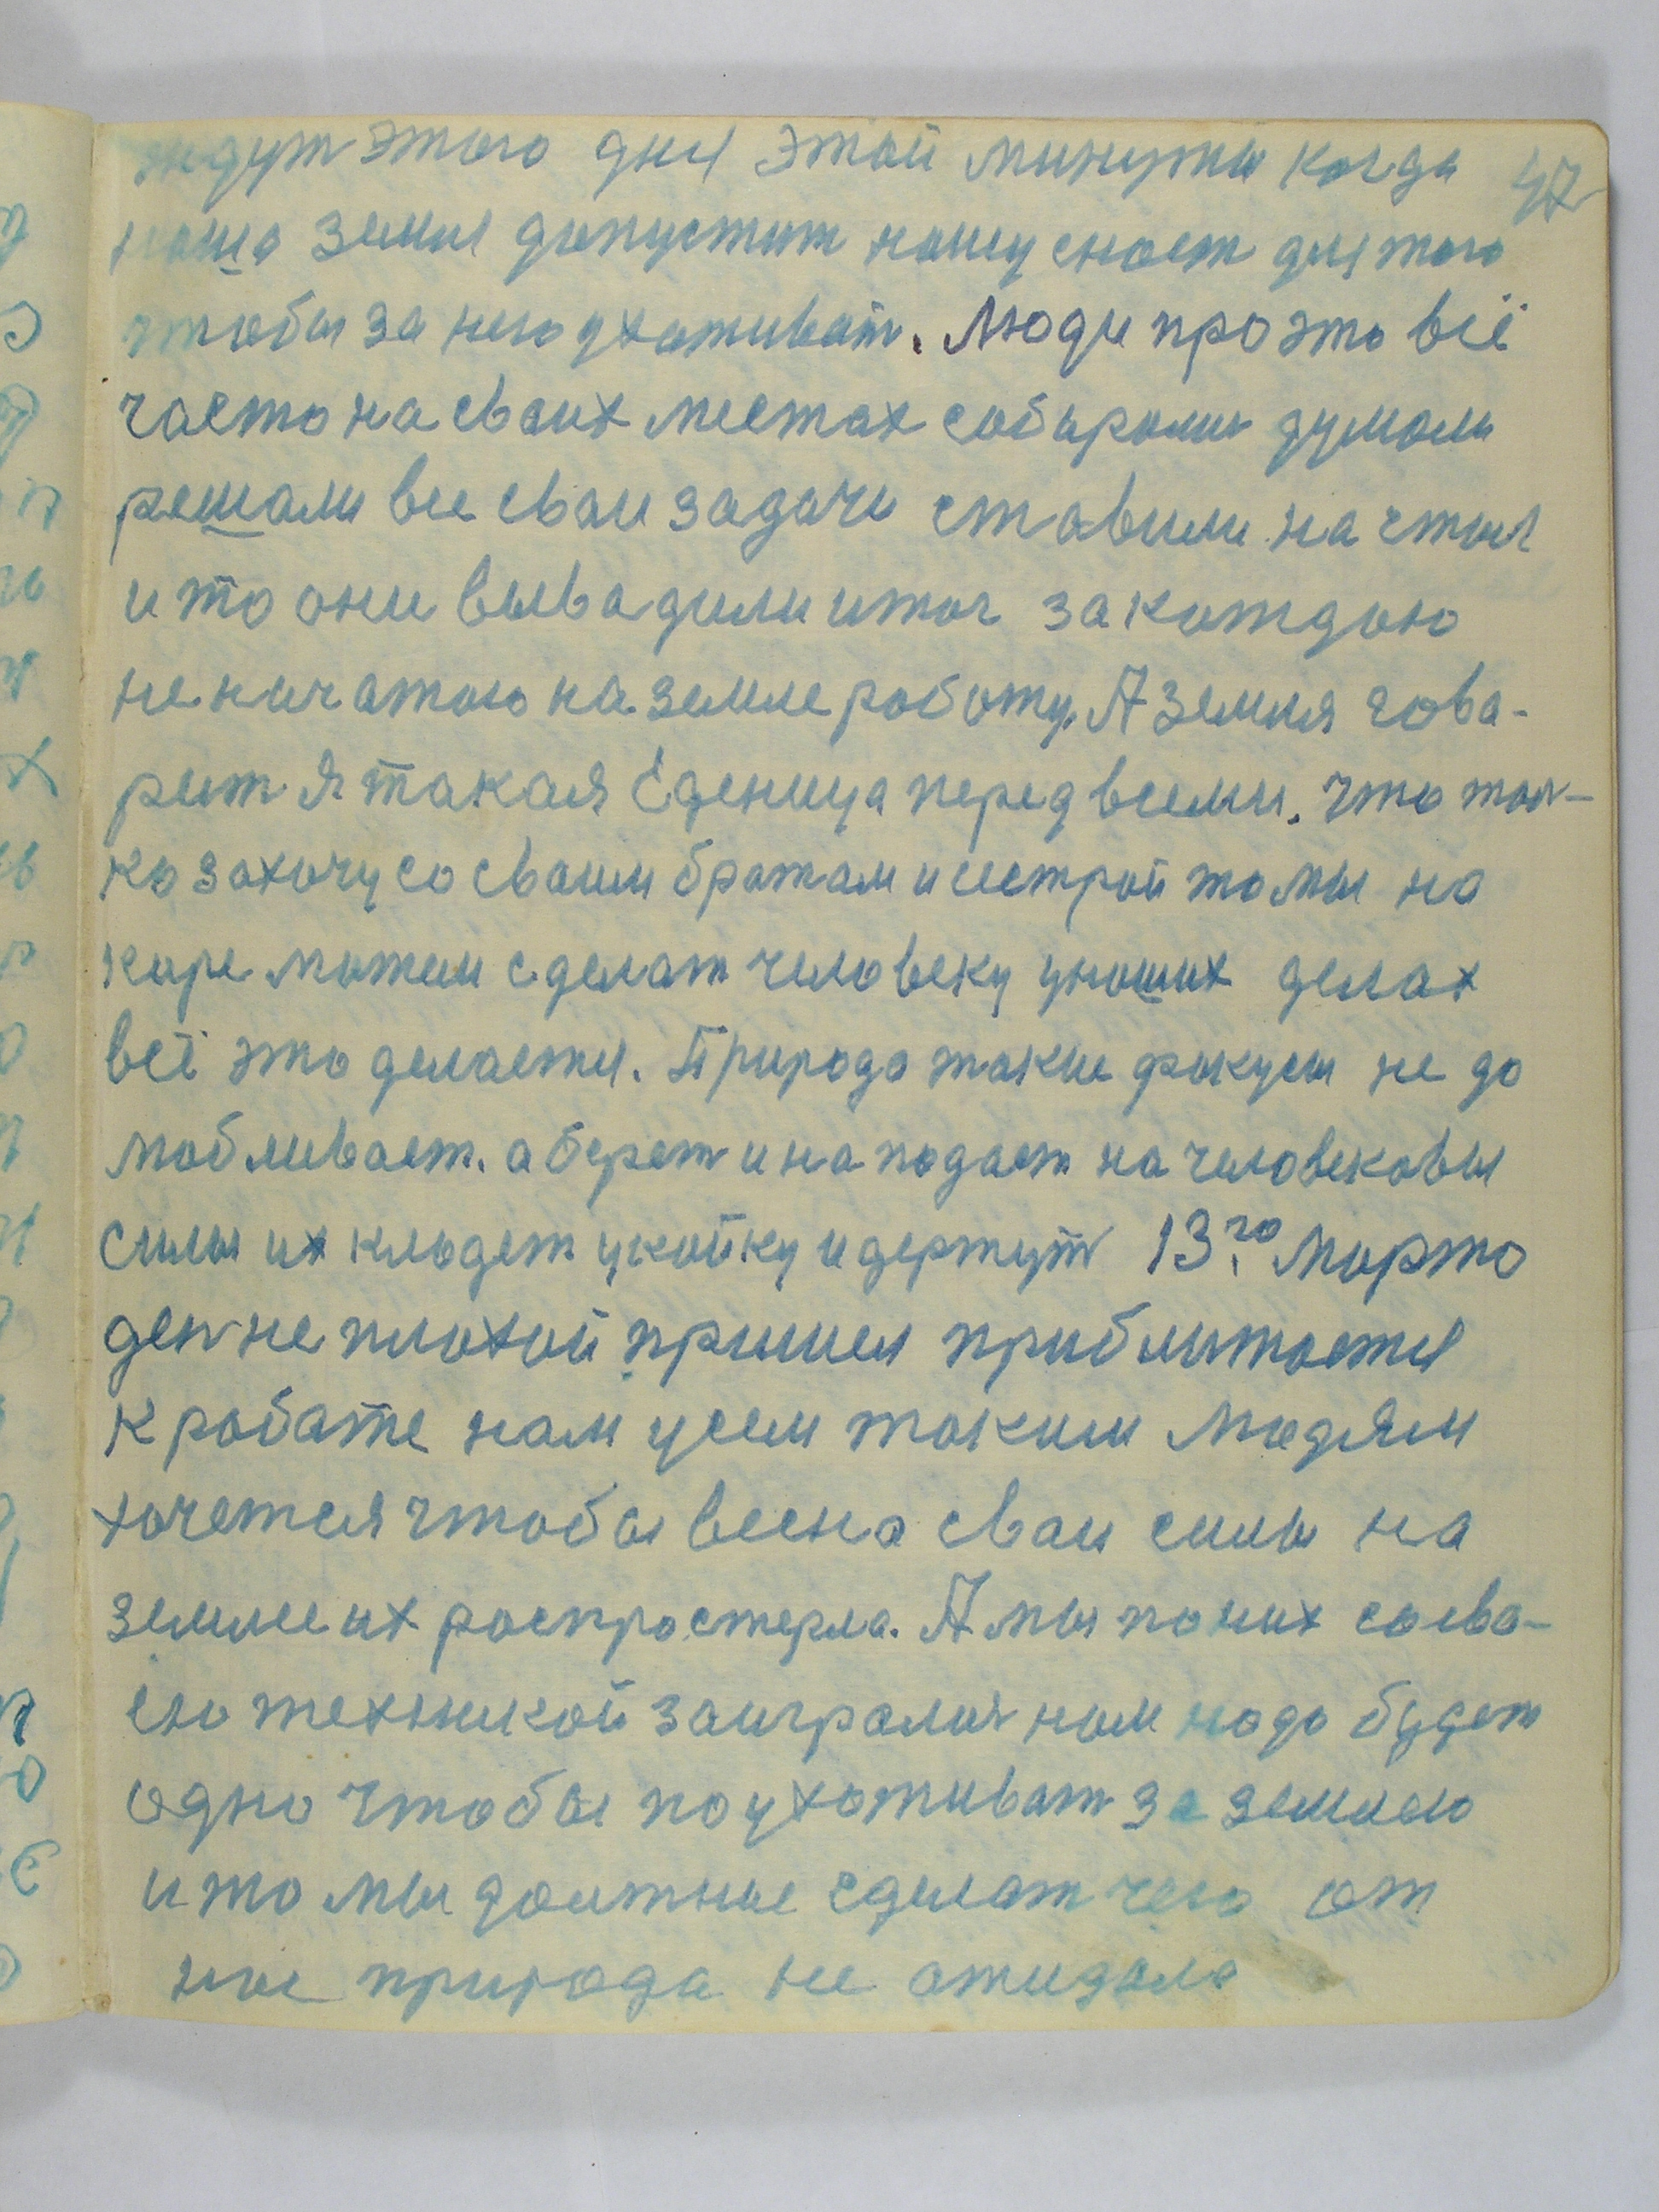 ждут этого дня этой минуты когда 47
наша земля допустит нашу снаст для того
чтобы за него ухаживать. Люди про это всё
часто на сваих местах собырались думали
решали все сваи задачи ставили на стол
и то они вывадили итог за каждою
не начатою на земле работу. А земля гова-
рит я такая Еденица перед всеми. что тол-
ко захочу со сваим братам и сестрой то мы на
горе можем сделат человеку у наших делах
всё это делается. Природа такие фокусы не до
мобливает. а берет и нападает на человековы
силы их кладет у койку и держут 13го Марта
ден не плохой пришел приближается
к работе нам усем таким людям
хочется чтобы весна сваи силы на
земле их распростерла. А мы по них соева-
ею техникой заиграли нам надо будет
одно чтобы поухаживат за землею
и то мы должные сделат чего от
нас природа не ожидала